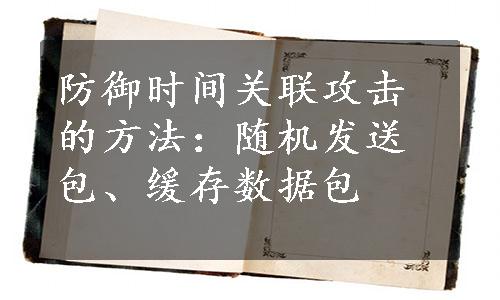 防御时间关联攻击
的方法：随机发送
包、缓存数据包